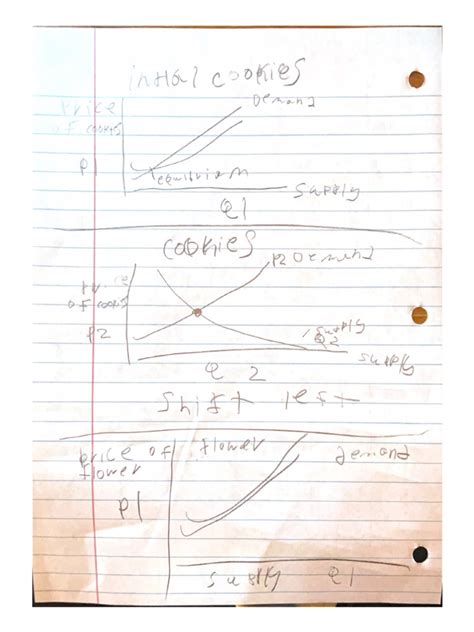 initial cookies
Price
Demand
of cookies
P1
equilibriam
supply
Q1
cookies
P2 Demand
of cookies
P2
supply
Q2
supply
Q 2
Shift left
price of
flower
demand
flower
P1
supply Q1